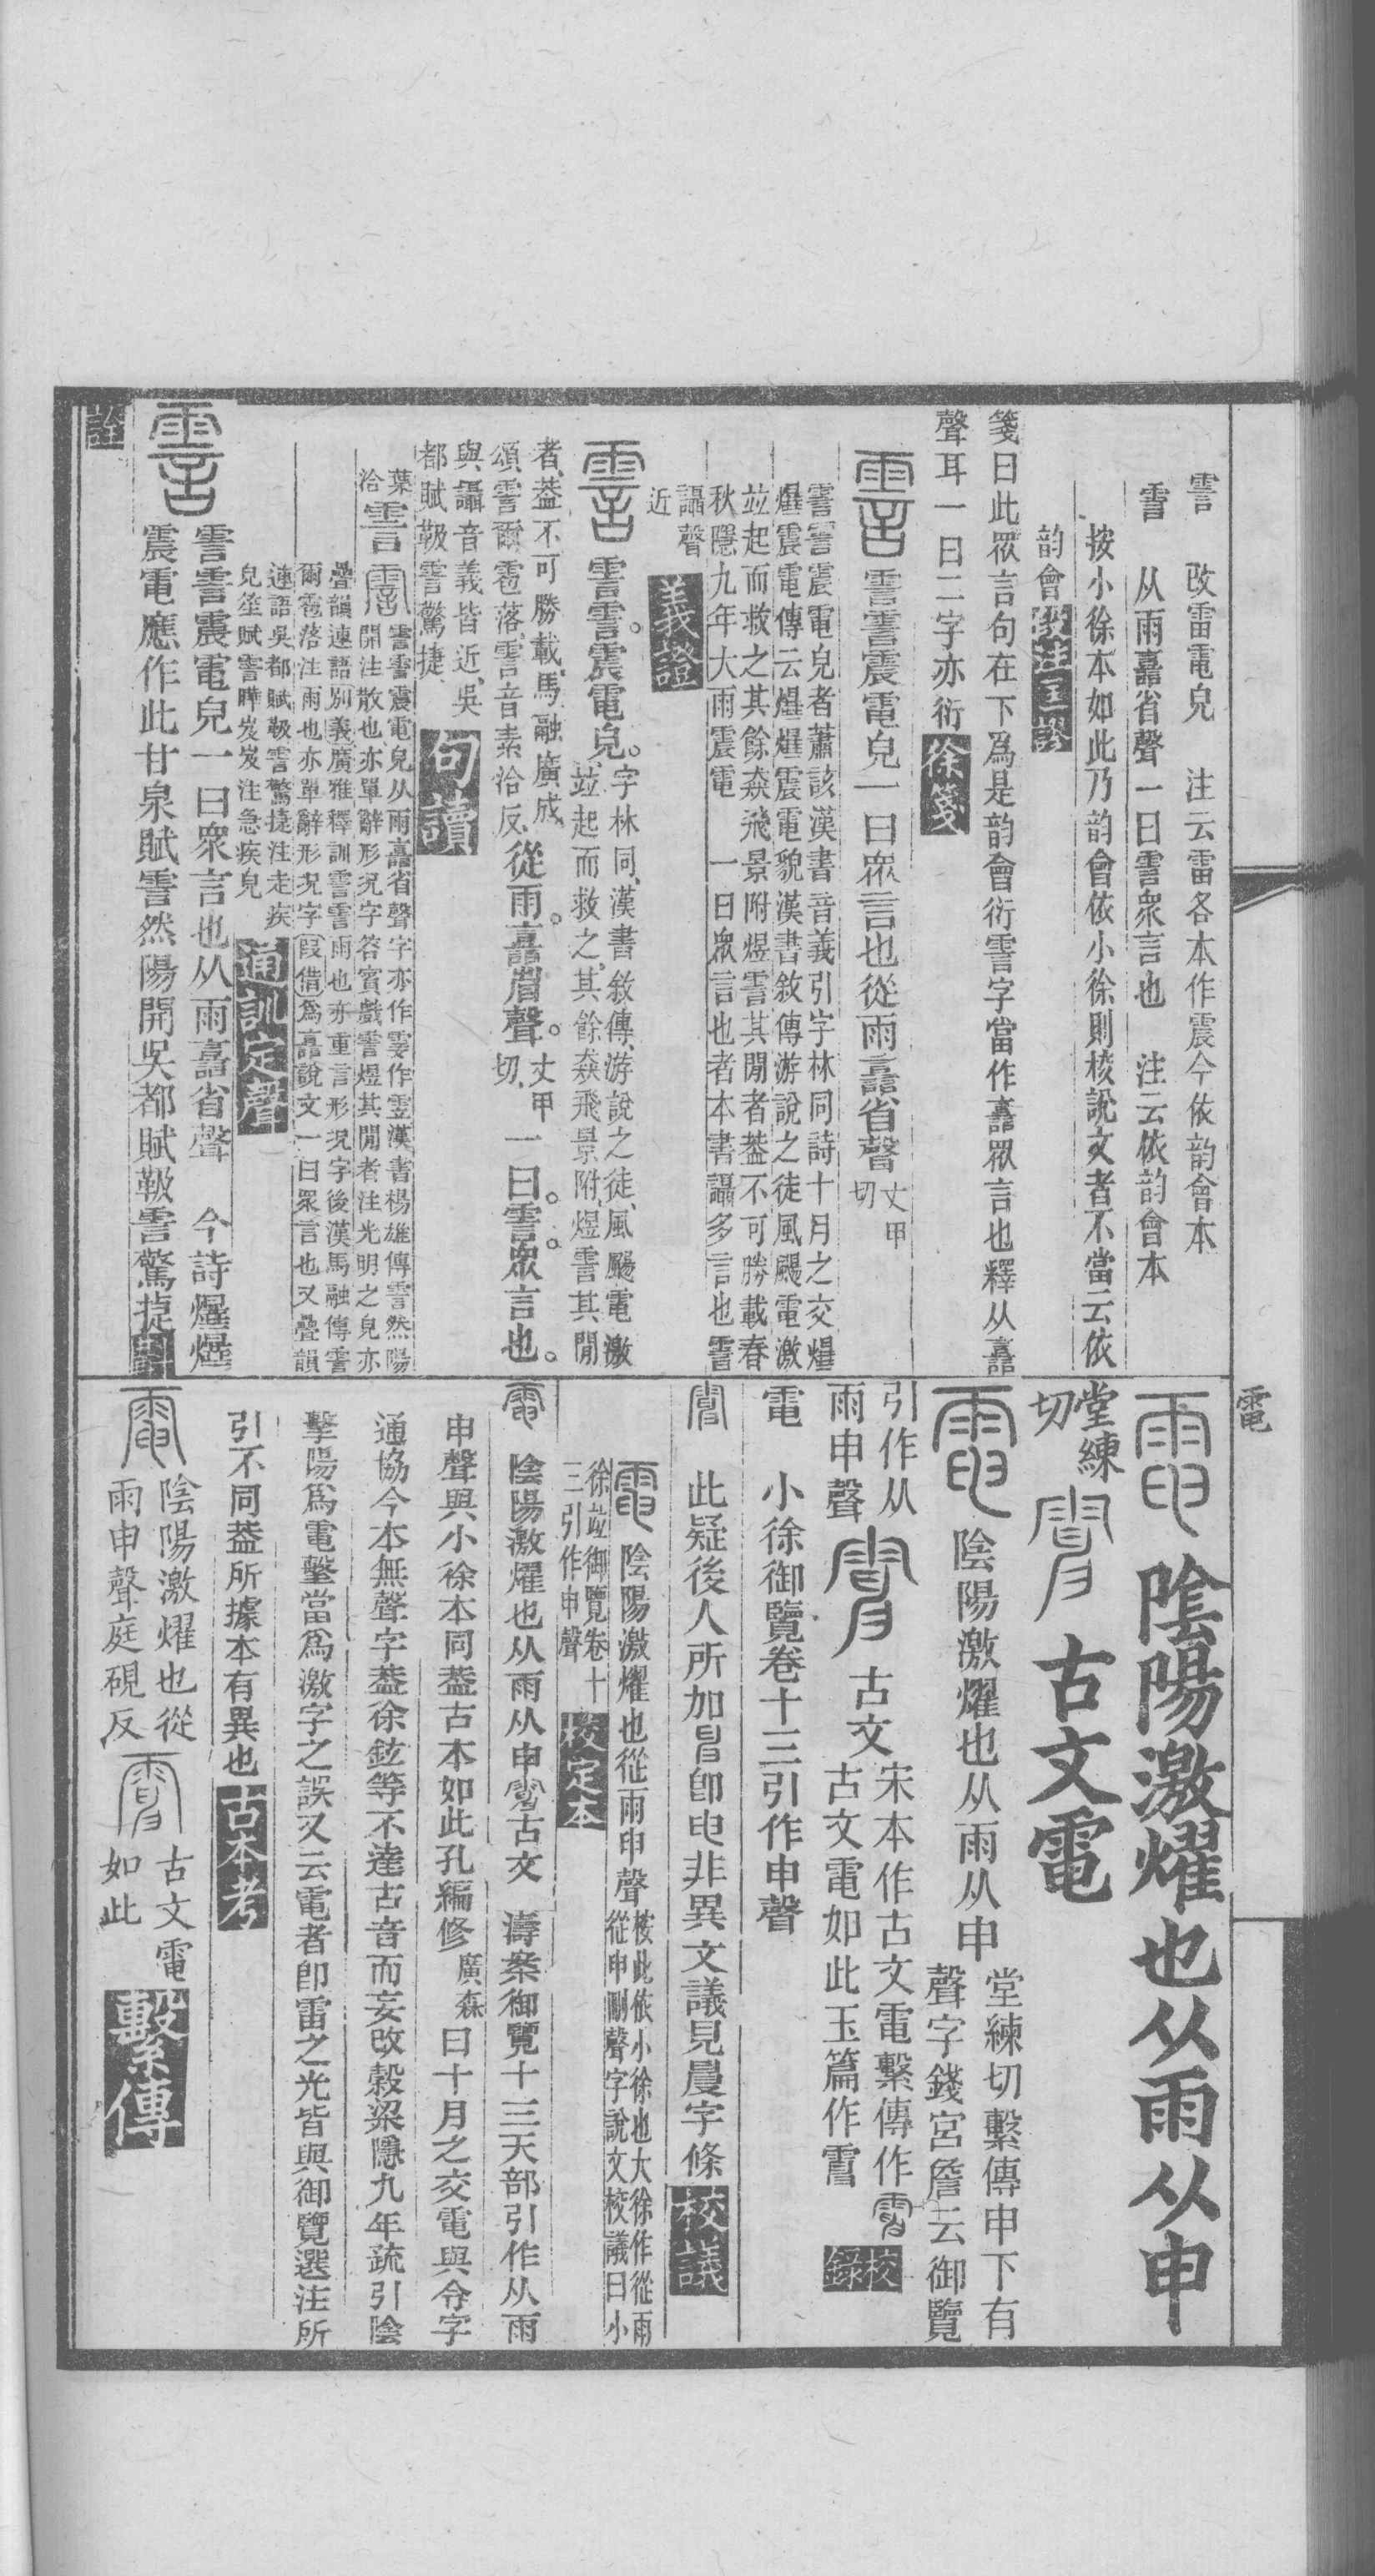 霅　改雷電皃　注云雷各本作震今依韵會本
霅　从雨嚞省聲一曰霅眾言也　注云依韵會本
按小徐本如此乃韵會依小徐則校說文者不當云依
韵會段注匡謬
箋曰此眾言句在下爲是韵會衍霅字當作嚞眾言也釋从嚞
聲耳一曰二字亦衍徐箋
霅霅震電皃一曰眾言也從雨嚞省聲
丈甲
切
霅霅震電皃者蕭該漢書音義引字林同詩十月之交爗
爗震電傳云爗爗震電貌漢書敘傳游說之徒風颺電激
竝起而救之其餘猋飛景附煜霅其閒者葢不可勝載春
秋隱九年大雨震電　一曰眾言也者本書讘多言也霅
讘聲
近　義證
霅霅。震電皃。
字林同、漢書敘傳、游說之徒、風颺電激
竝起而救之、其餘猋飛景附、煜霅其閒
者、葢不可勝載、馬融廣成
頌、霅爾雹落、霅音素洽反、從雨。嚞省聲。
丈甲
切、
一曰。霅。眾言也。
與讘音義皆近、吳
都賦靸霅驚捷
句讀
葉
洽
霅
霅霅震電皃从雨嚞省聲字亦作霎作霊漢書楊雄傳霅然陽
開注散也亦單辭形況字答賓戲霅煜其閒者注光明之皃亦
疊韻連語別義廣雅釋訓霅霅雨也亦重言形況字後漢馬融傳霅
爾雹落注雨也亦單辭形況字叚借爲嚞說文一曰眾言也又疊韻
連語吳都賦靸霅驚捷注走疾
皃笙賦霅曄岌岌注急疾皃
通訓定聲
霅霅震電皃一曰眾言也从雨嚞省聲　今詩爗爗
震電應作此甘泉賦霅然陽開吳都賦靸霅驚捷斠
詮
電
陰陽激燿也从雨从申
堂練
切
古文電
陰陽激燿也从雨从申
堂練切繫傳申下有
聲字錢宮詹云御覽
引作从
雨申聲
古文
宋本作古文電繫傳作
古文電如此玉篇作
校
錄
電　小徐御覽卷十三引作申聲
此疑後人所加𦥔即申非異文議見㬰字條校議
陰陽激燿也從雨申聲
按此依小徐也大徐作從雨
從申刪聲字說文校議曰小
徐竝御覽卷十
三引作申聲
校定本
陰陽激燿也从雨从申　古文　濤案御覽十三天部引作从雨
申聲與小徐本同葢古本如此孔編修廣森曰十月之交電與令字
通協今本無聲字葢徐鉉等不達古音而妄改穀梁隱九年疏引陰
擊陽爲電擊當爲激字之誤又云電者即雷之光皆與御覽選注所
引不同葢所據本有異也古本考
陰陽激燿也從
雨申聲庭硯反
古文電
如此
繫傳